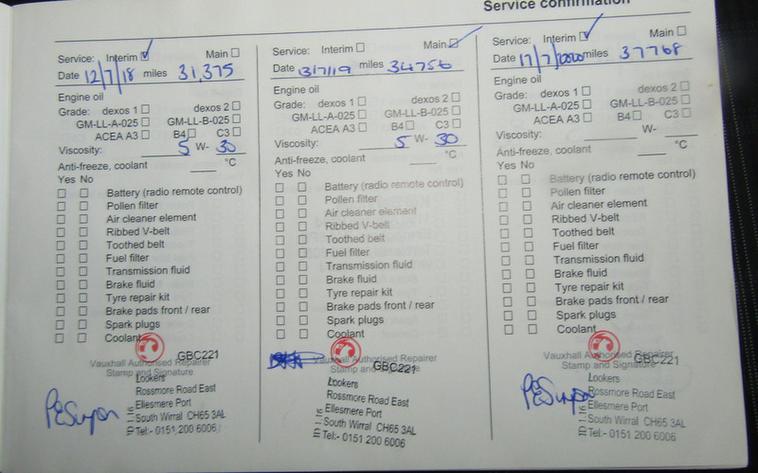 Service confirmation
Service: Interim ☑ Main ☐
Date 12/7/18 miles 31,375
Engine oil
Grade: dexos 1 ☐ dexos 2 ☐
GM-LL-A-025 ☐ GM-LL-B-025 ☐
ACEA A3 ☐ B4 ☐ C3 ☐
Viscosity: 5 W- 30
Anti-freeze, coolant ____ °C
Yes No
☐ ☐ Battery (radio remote control)
☐ ☐ Pollen filter
☐ ☐ Air cleaner element
☐ ☐ Ribbed V-belt
☐ ☐ Toothed belt
☐ ☐ Fuel filter
☐ ☐ Transmission fluid
☐ ☐ Brake fluid
☐ ☐ Tyre repair kit
☐ ☐ Brake pads front / rear
☐ ☐ Spark plugs
☐ ☐ Coolant
GBC221
Vauxhall Authorised Repairer
Stamp and Signature
Lookers
Rossmore Road East
Ellesmere Port
South Wirral CH65 3AL
Tel:- 0151 200 6006
Service: Interim ☐ Main ☑
Date 13/7/19 miles 34756
Engine oil
Grade: dexos 1 ☐ dexos 2 ☐
GM-LL-A-025 ☐ GM-LL-B-025 ☐
ACEA A3 ☐ B4 ☐ C3 ☐
Viscosity: 5 W- 30
Anti-freeze, coolant ____ °C
Yes No
☐ ☐ Battery (radio remote control)
☐ ☐ Pollen filter
☐ ☐ Air cleaner element
☐ ☐ Ribbed V-belt
☐ ☐ Toothed belt
☐ ☐ Fuel filter
☐ ☐ Transmission fluid
☐ ☐ Brake fluid
☐ ☐ Tyre repair kit
☐ ☐ Brake pads front / rear
☐ ☐ Spark plugs
☐ ☐ Coolant
Vauxhall Authorised Repairer
GBC221
Lookers
Rossmore Road East
Ellesmere Port
South Wirral CH65 3AL
Tel:- 0151 200 6006
Service: Interim ☑ Main ☐
Date 17/7/2020 miles 37768
Engine oil
Grade: dexos 1 ☐ dexos 2 ☐
GM-LL-A-025 ☐ GM-LL-B-025 ☐
ACEA A3 ☐ B4 ☐ C3 ☐
Viscosity: ____ W- ____
Anti-freeze, coolant ____ °C
Yes No
☐ ☐ Battery (radio remote control)
☐ ☐ Pollen filter
☐ ☐ Air cleaner element
☐ ☐ Ribbed V-belt
☐ ☐ Toothed belt
☐ ☐ Fuel filter
☐ ☐ Transmission fluid
☐ ☐ Brake fluid
☐ ☐ Tyre repair kit
☐ ☐ Brake pads front / rear
☐ ☐ Spark plugs
☐ ☐ Coolant
Vauxhall Authorised Repairer
GBC221
Stamp and Signature
Lookers
Rossmore Road East
Ellesmere Port
South Wirral CH65 3AL
Tel:- 0151 200 6006